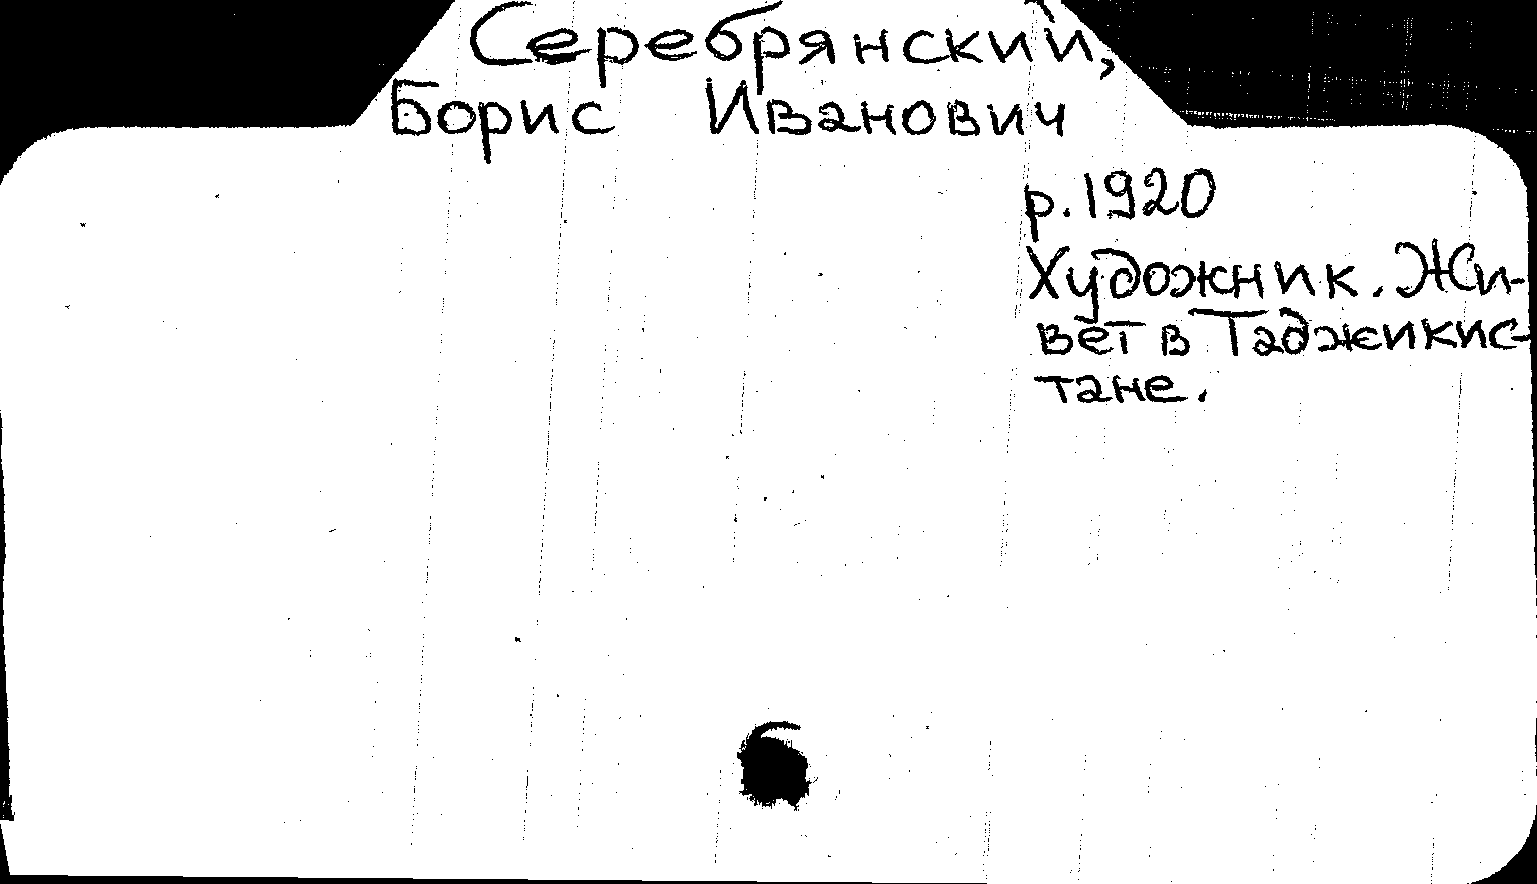 Серебрянский,
Борис Иванович
р. 1920
Художник. Жи-
вет в Таджикис-
тане.